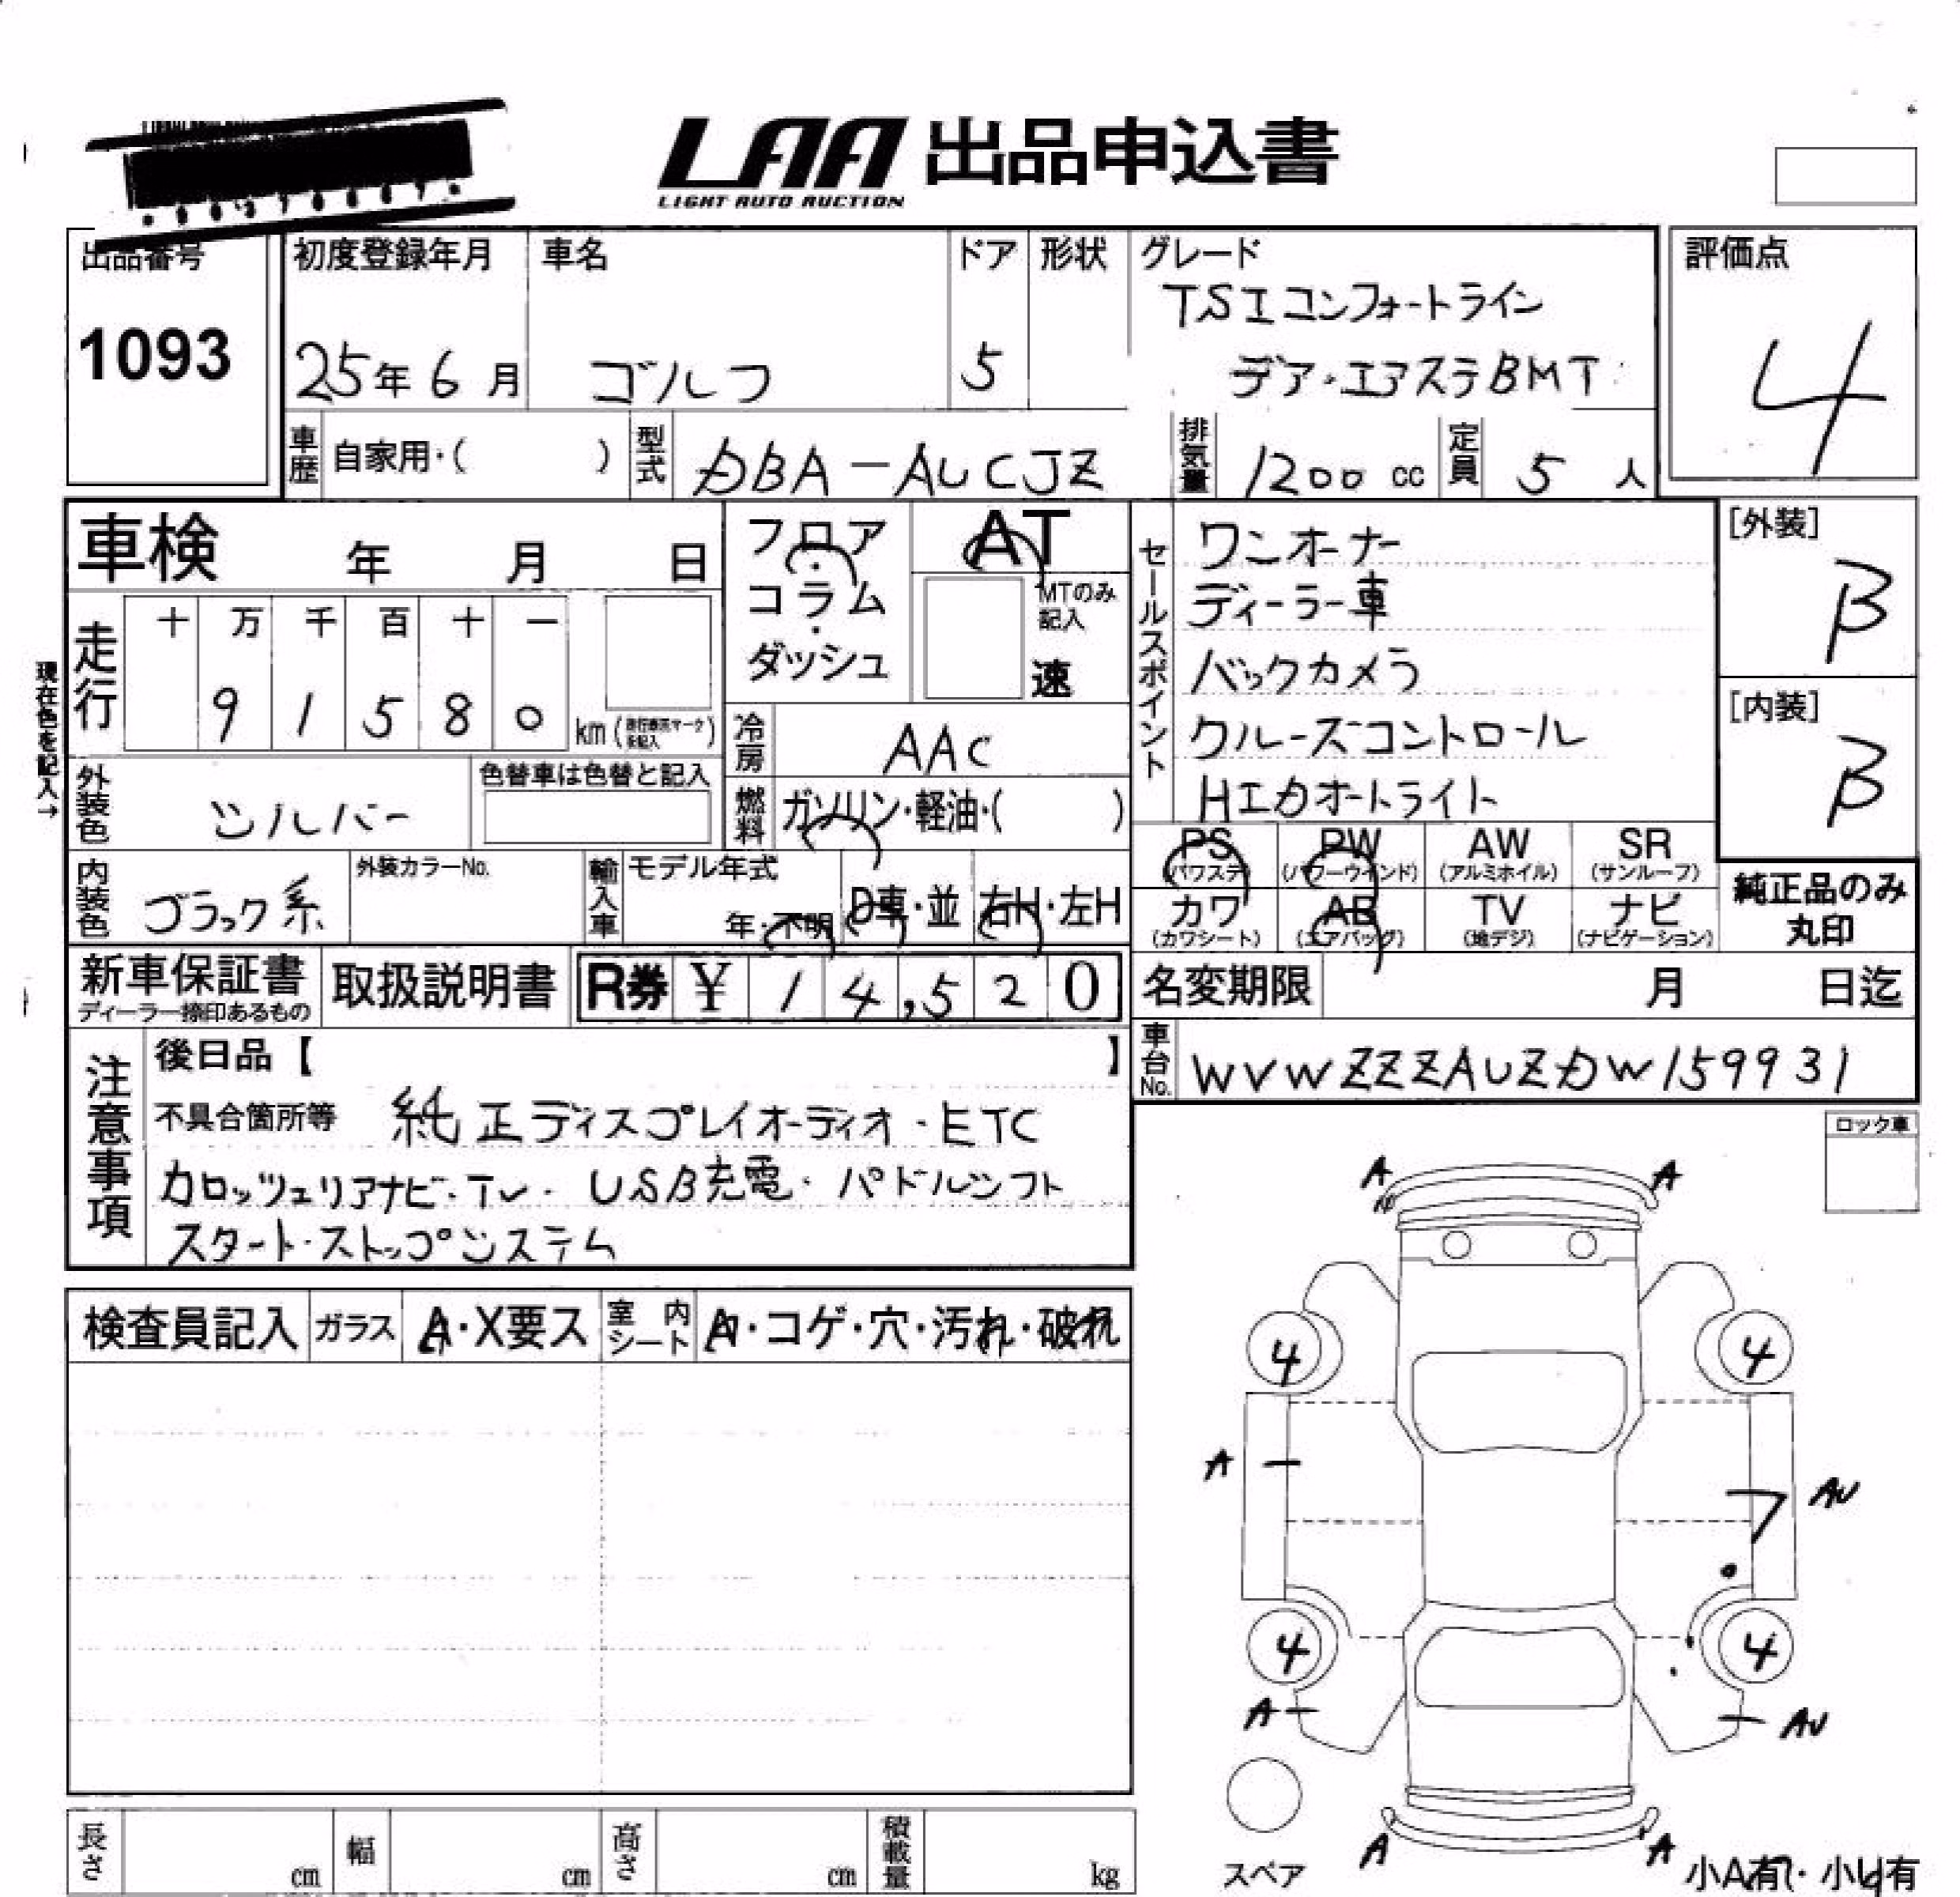 LAA 出品申込書
LIGHT AUTO AUCTION
出品番号
1093
初度登録年月
25年 6月
車名
ゴルフ
ドア
5
形状
グレード
TSIコンフォートライン
デア・エアステBMT
評価点
4
車歴
自家用・( )
型式
DBA-AUCJZ
排気量
1200 cc
定員
5 人
車検 年 月 日
フロア・コラム・ダッシュ
AT
MTのみ記入
速
セールスポイント
ワンオーナー
ディーラー車
バックカメラ
クルーズコントロール
HIDオートライト
[外装]
B
[内装]
B
現在色を記入→
走行
十 万 千 百 十 一
9 1 5 8 0 km
冷房
AAC
外装色
シルバー
色替車は色替と記入
燃料
ガソリン・軽油・( )
内装色
ブラック系
外装カラーNo.
輸入車
モデル年式
年・不明
D車・並
右H・左H
PS (パワステ)
PW (パワーウインド)
AW (アルミホイル)
SR (サンルーフ)
カワ (カワシート)
AB (エアバッグ)
TV (地デジ)
ナビ (ナビゲーション)
純正品のみ丸印
新車保証書
ディーラー捺印あるもの
取扱説明書
R券 ¥ 14,520
名変期限 月 日迄
車台No.
WVWZZZAUZDW159931
注意事項
後日品【 】
不具合箇所等 純正ディスプレイオーディオ・ETC
カロッツェリアナビ・TV・USB充電・パドルシフト
スタート・ストップシステム
ロック車
検査員記入
ガラス
A・X要ス
室内シート
A・コゲ・穴・汚れ・破れ
A A
4 4
A AU
4 4
A AU
スペア
A A
小A有・小U有
長さ cm
幅 cm
高さ cm
積載量 kg